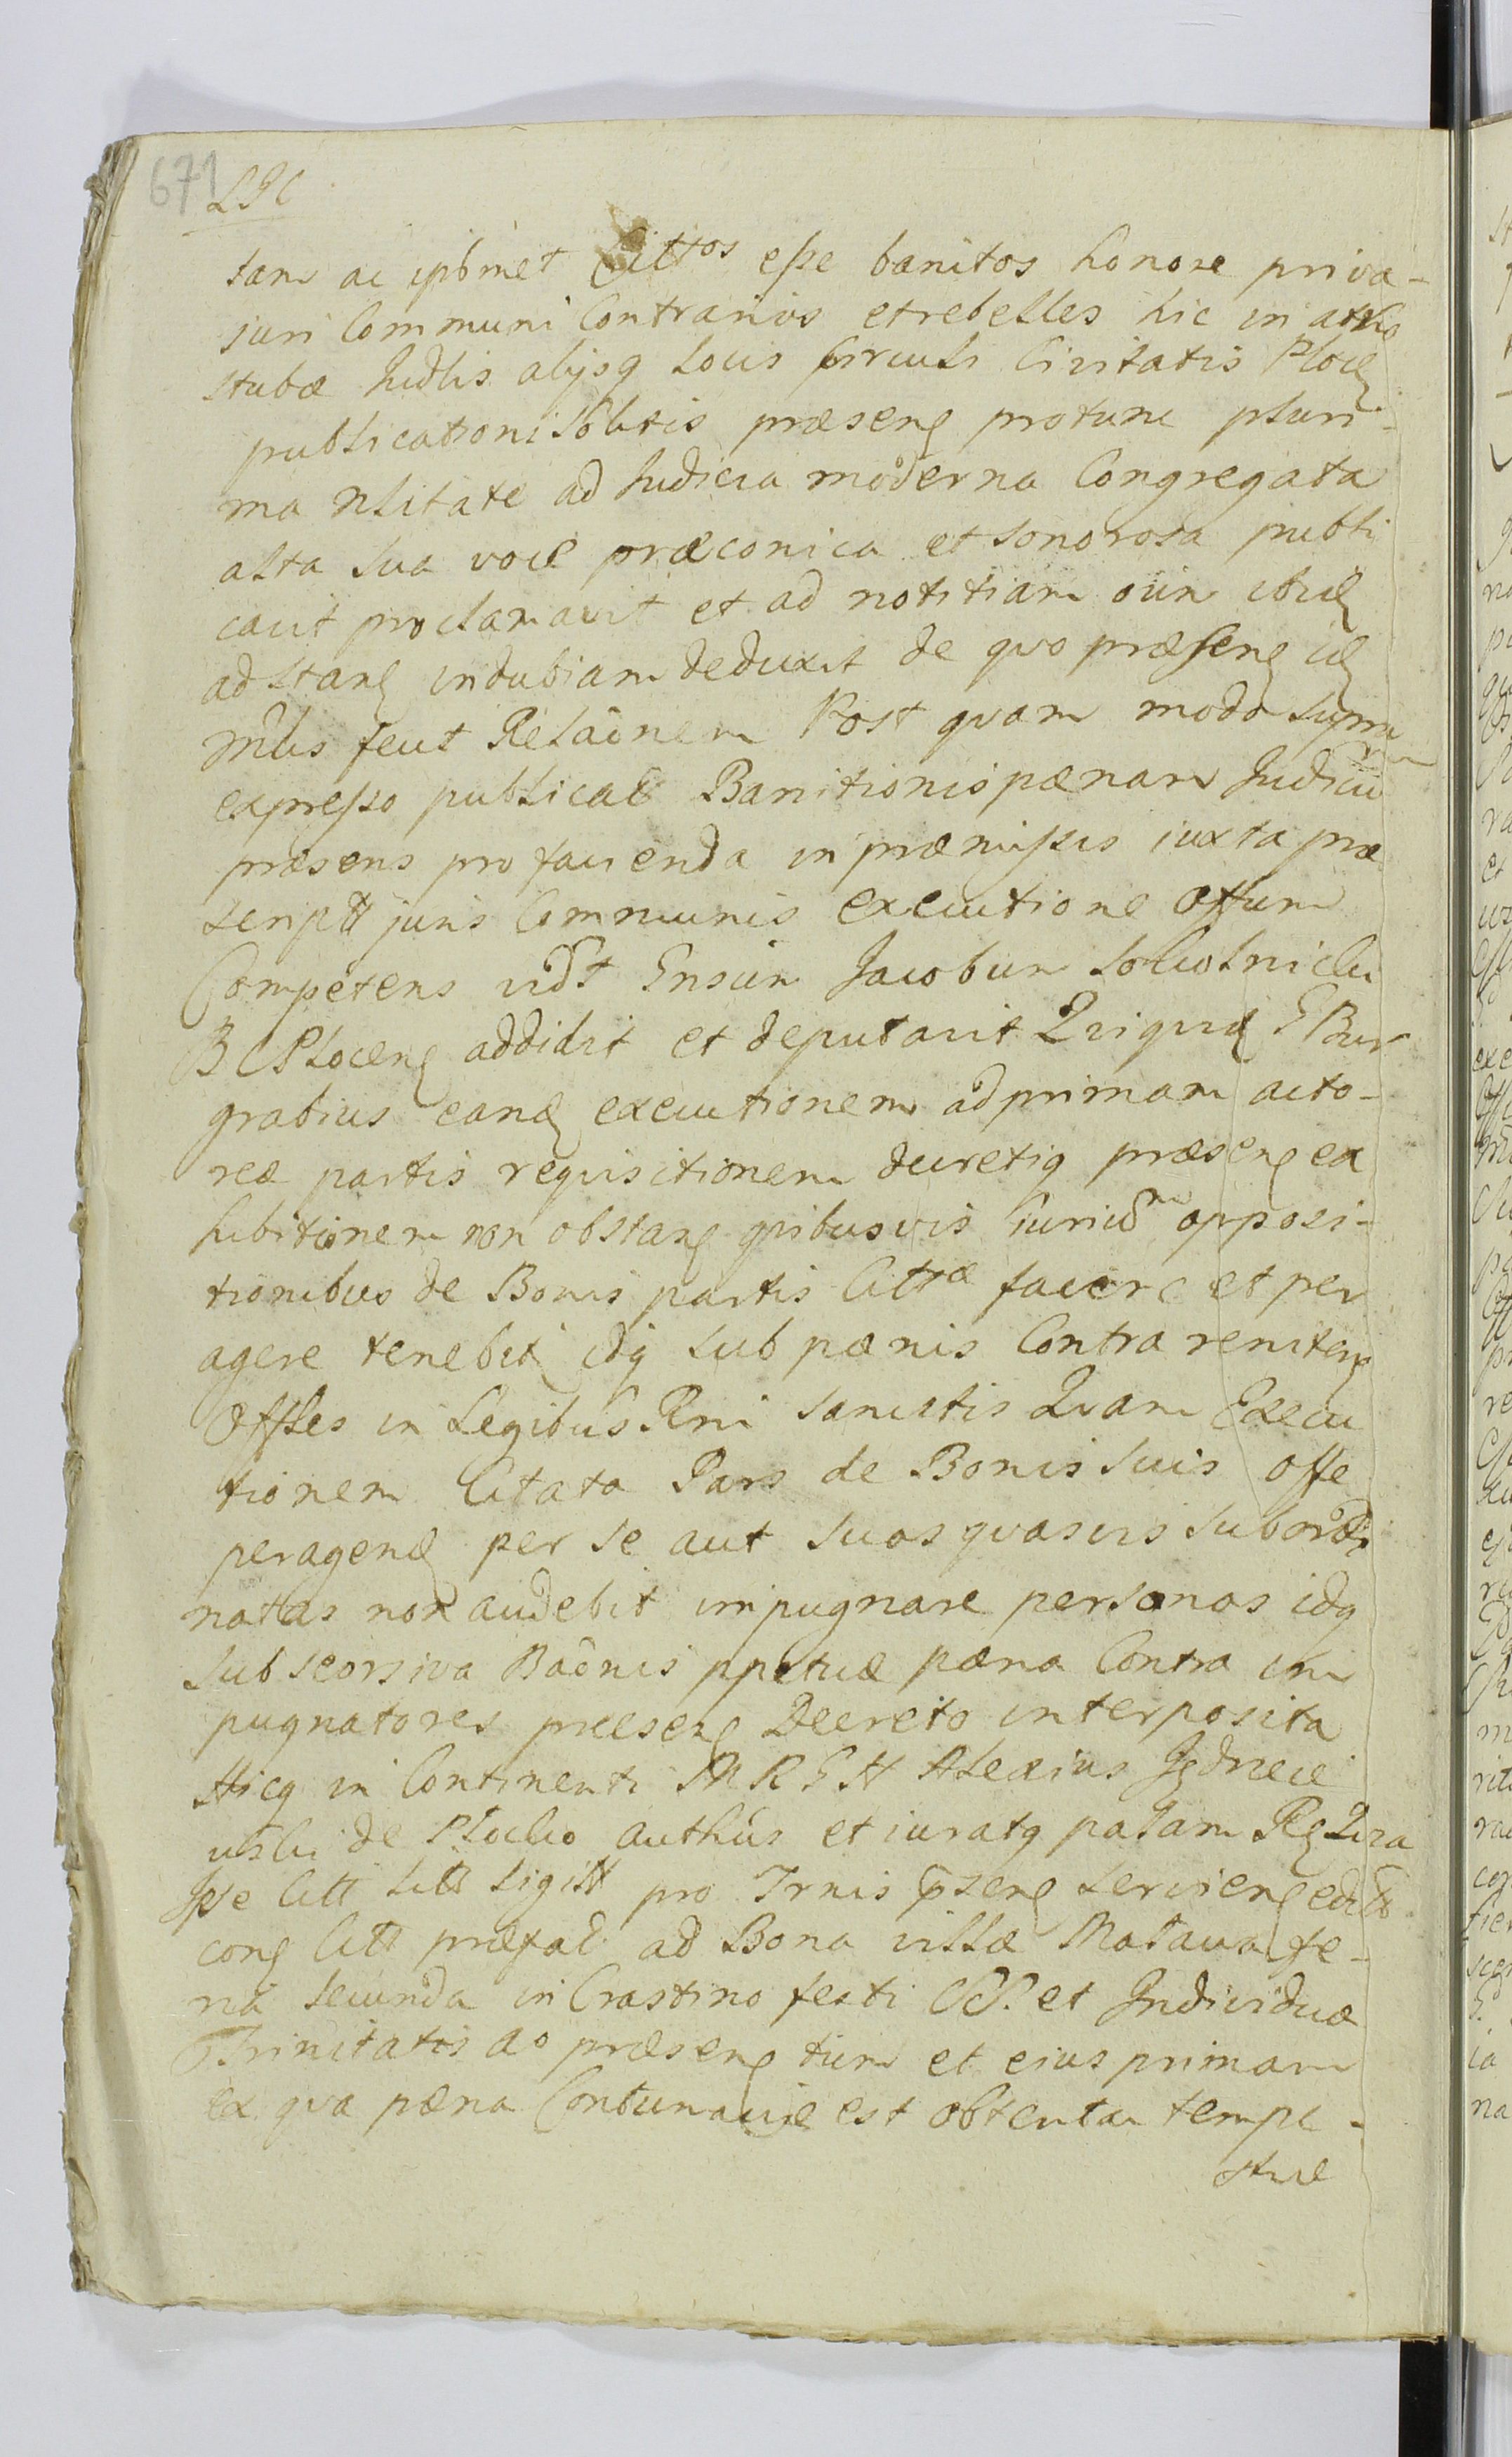 671 LJC
tam ac ipsmet Cittos esse banitos honore priva-
juri Communi Contrarios et rebelles hic in atrio
stubæ Judlis alijsq locis Circuli Civitatis Ploc
publicationi solitis præsen protunc pluri-
ma Nlitate ad Judicia moderna Congregata
alta sua voce præconica et sonorosa publi
cavit proclamavit et ad notitiam oium ibid
adstan indubiam deduxit de quo præsen id
Mlis fecit Relaõnem Post quam modo supra
expresso publicat Banitionis pænam Judiciu
præsens pro facienda in præmissis iuxta præ
scriptt juris Communis executione Offum
Competens vidt Gnsum Jacobum
B C Plocen addidit et deputavit Qui quid G Bur
grabius eand executionem ad primam acto-
reæ partis requisitionem decretiq præsen ex
hibitionem non obstan quibusvis juridm opposi-
tionibus de Bonis partis Cittæ facere et per
agere tenebit idq sub pænis Contra reniten
Offles in Legibus Rni sancitis Quam Execu
tionem Citata Pars de Bonis suis offe
peragend per se aut suas quasvis subordi
natas non audebit impugnare personas idq
sub seorsiva Baõnis ppetuæ pæna Contra im
pugnatores præsen Decreto interposita
Hicq in Continenti M R G N Alexius Jędrzeie
wski de Płocko authus et iuratq palam Reg Qua
Ipse Citt Litt Sigill pro Trnis præsen servien edit
con Citt præfat ad Bona villæ fe-
ria secunda in Crastino festi SS. et Individuæ
Trinitatis ao præsen tium et eius primam
ex qua pæna Contumaciæ est obtenta tempe-
stive